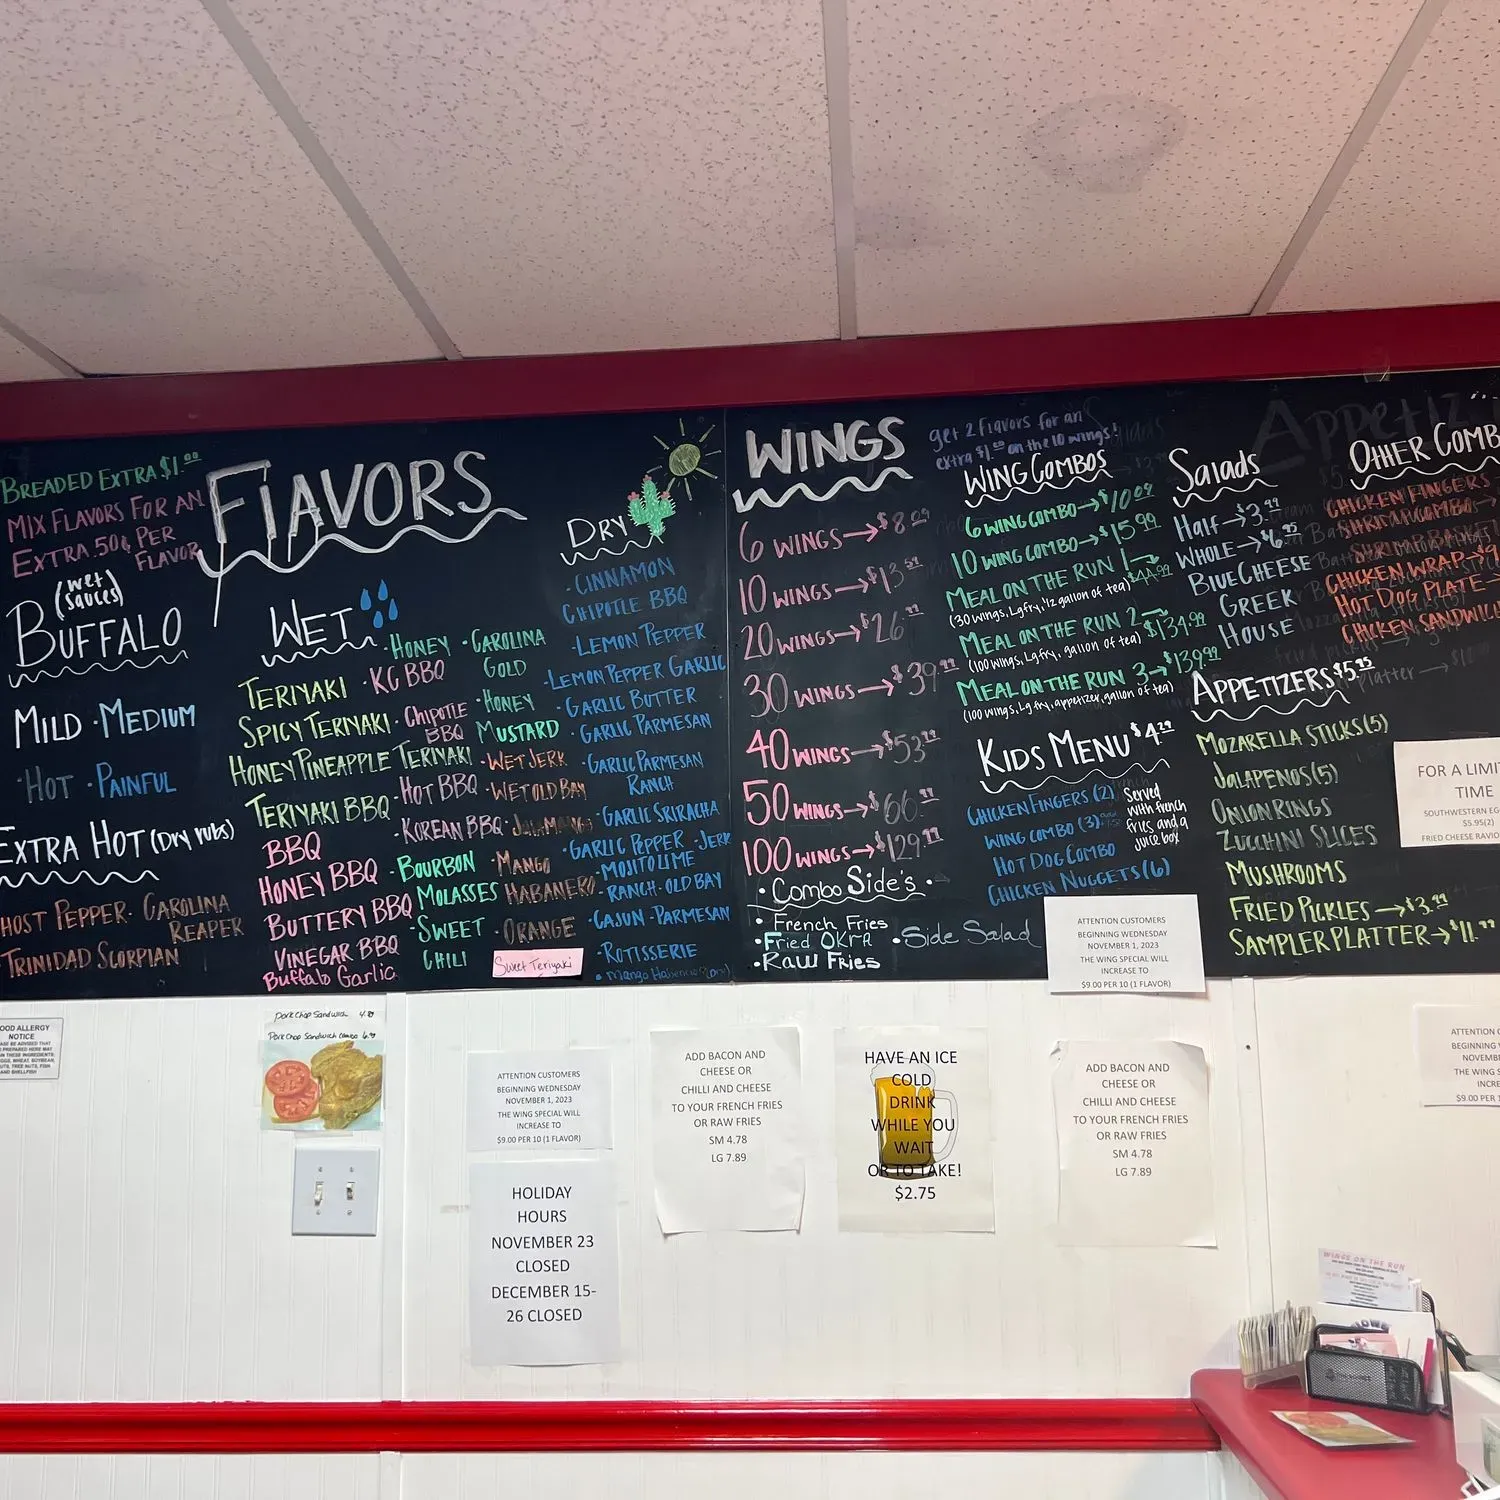 BREADED EXTRA $1.00
MIX FLAVORS FOR AN
EXTRA .50¢ PER
FLAVOR
FLAVORS
(wet
sauces)
BUFFALO
MILD · MEDIUM
· HOT · PAINFUL
EXTRA HOT (DRY rubs)
HOST PEPPER · CAROLINA
REAPER
TRINIDAD SCORPIAN
WET
TERIYAKI
SPICY TERIYAKI
HONEY PINEAPPLE TERIYAKI
TERIYAKI BBQ
BBQ
HONEY BBQ
BUTTERY BBQ
VINEGAR BBQ
Buffalo Garlic
· HONEY
· KC BBQ
· CHIPOTLE
BBQ
· HOT BBQ
· KOREAN BBQ
· BOURBON
MOLASSES
· SWEET
CHILI
· CAROLINA
GOLD
· HONEY
MUSTARD
· WET JERK
· WET OLD BAY
· MANGO
HABANERO
· ORANGE
Sweet Teriyaki
DRY
· CINNAMON
CHIPOTLE BBQ
· LEMON PEPPER
· LEMON PEPPER GARLIC
· GARLIC BUTTER
· GARLIC PARMESAN
· GARLIC PARMESAN
RANCH
· GARLIC SRIRACHA
· GARLIC PEPPER · JERK
· MOJITO LIME
· RANCH · OLD BAY
· CAJUN · PARMESAN
· ROTISSERIE
WINGS
get 2 Flavors for an
extra $1.00 on the 10 wings!
6 WINGS → $8.09
10 WINGS → $13.59
20 WINGS → $26
30 WINGS → $39.99
40 WINGS → $53.99
50 WINGS → $66
100 WINGS → $129.99
· Combo Side's ·
· French Fries
· Fried OKra · Side Salad
· Raw Fries
WING COMBOS
6 WING COMBO → $10.09
10 WING COMBO → $15.99
MEAL ON THE RUN 1 → $44.99
(30 wings, Lg fry, 1/2 gallon of tea)
MEAL ON THE RUN 2 → $134.99
(100 wings, Lg fry, gallon of tea)
MEAL ON THE RUN 3 → $139.99
(100 wings, Lg fry, appetizer, gallon of tea)
KIDS MENU $4.29
CHICKEN FINGERS (2)
WING COMBO (3)
HOT DOG COMBO
CHICKEN NUGGETS (6)
Served
with french
fries and a
juice box
Salads
Half → $3.99
WHOLE → $6.95
BLUE CHEESE
GREEK
HOUSE
APPETIZERS $5.95
MOZARELLA STICKS (5)
JALAPENOS (5)
ONION RINGS
ZUCCHINI SLICES
MUSHROOMS
FRIED PICKLES → $3.99
SAMPLER PLATTER → $11.99
OTHER COMB
CHICKEN FINGERS
SHRIMP COMBO
SHRIMP BASKET
CHICKEN WRAP → $9
HOT DOG PLATE →
CHICKEN SANDWIC
FOR A LIMIT
TIME
SOUTHWESTERN EG
$5.95(2)
FRIED CHEESE RAVIO
ATTENTION CUSTOMERS
BEGINNING WEDNESDAY
NOVEMBER 1, 2023
THE WING SPECIAL WILL
INCREASE TO
$9.00 PER 10 (1 FLAVOR)
OOD ALLERGY
NOTICE
AND SHELLFISH
Pork Chop Sandwich 4.89
Pork Chop Sandwich Combo
ATTENTION CUSTOMERS
BEGINNING WEDNESDAY
NOVEMBER 1, 2023
THE WING SPECIAL WILL
INCREASE TO
$9.00 PER 10 (1 FLAVOR)
HOLIDAY
HOURS
NOVEMBER 23
CLOSED
DECEMBER 15-
26 CLOSED
ADD BACON AND
CHEESE OR
CHILLI AND CHEESE
TO YOUR FRENCH FRIES
OR RAW FRIES
SM 4.78
LG 7.89
HAVE AN ICE
COLD
DRINK
WHILE YOU
WAIT
OR TO TAKE!
$2.75
ADD BACON AND
CHEESE OR
CHILLI AND CHEESE
TO YOUR FRENCH FRIES
OR RAW FRIES
SM 4.78
LG 7.89
ATTENTION C
BEGINNING W
NOVEMBE
THE WING S
INCRE
$9.00 PER 1
WINGS ON THE RUN